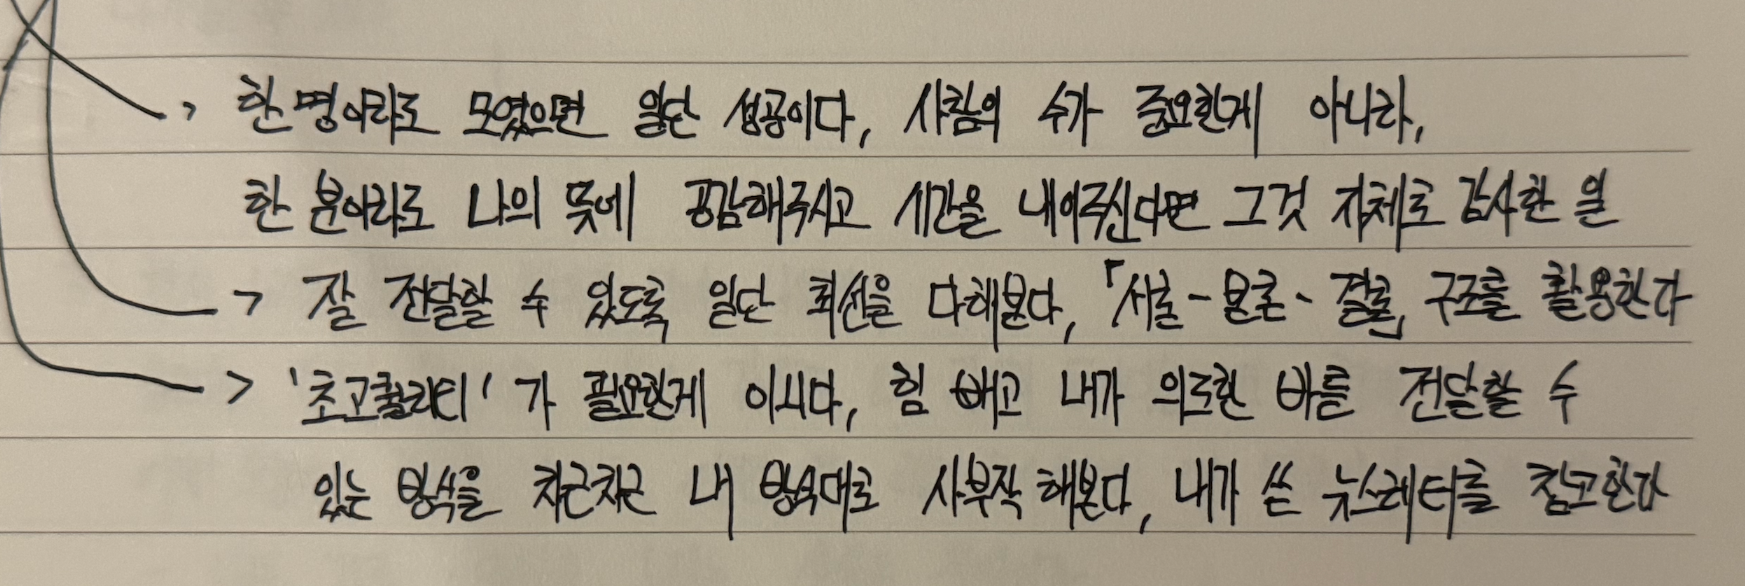 → 한 명이라도 모였으면 일단 성공이다, 사람의 수가 중요한게 아니라,
한 분이라도 나의 뜻에 공감해주시고 시간을 내어주신다면 그것 자체로 감사한 일
→ 잘 전달할 수 있도록 일단 최선을 다해본다, 「서론-본론-결론」 구조를 활용한다
→ '초고퀄리티'가 필요한게 아니다, 힘 빼고 내가 의도한 바를 전달할 수
있는 방식을 차근차근 내 방식대로 사부작 해본다, 내가 쓴 뉴스레터를 참고한다